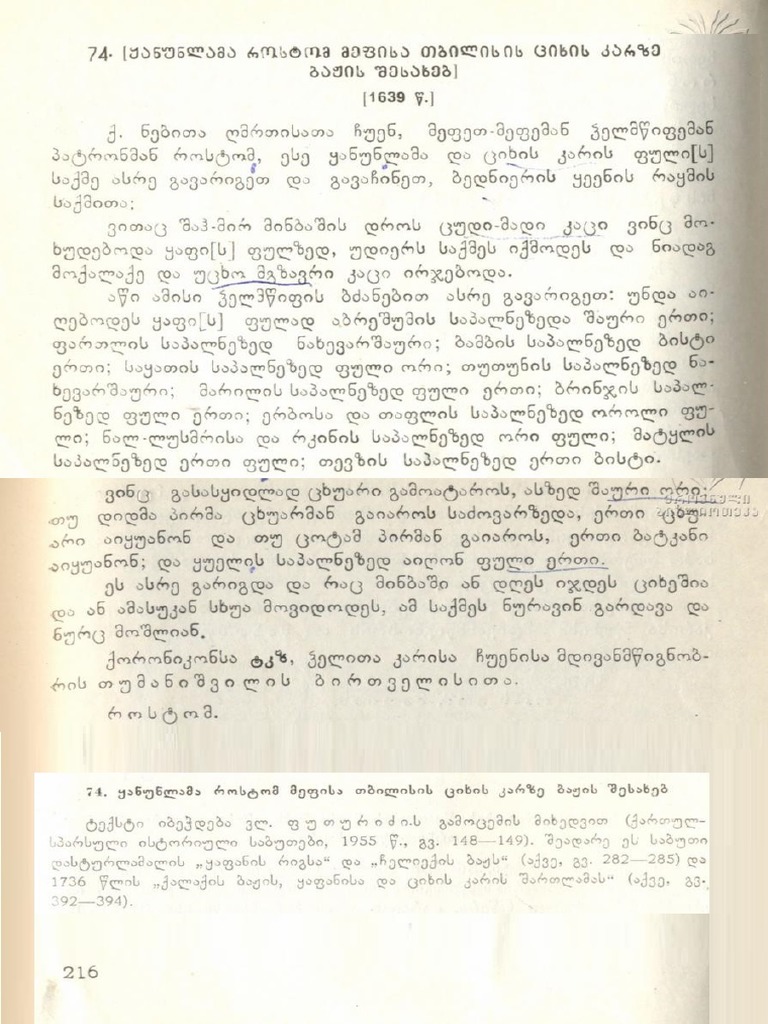 74. [ყანუნლამა როსტომ მეფისა თბილისის ციხის კარზე
ბაჟის შესახებ]
[1639 წ.]
ქ. ნებითა ღმრთისათა ჩუენ, მეფეთ-მეფემან ჴელმწიფემან
პატრონმან როსტომ, ესე ყანუნლამა და ციხის კარის ფული[ს]
საქმე ასრე გავარიგეთ და გავაჩინეთ, ბედნიერის ყეენის რაყმის
საქმითა:
ვითაც შაჰ-მირ მინბაშის დროს ცუდი-მადი კაცი ვინც მო-
ხუდებოდა ყაფი[ს] ფულზედ, უდიერს საქმეს იქმოდეს და ნიადაგ
მოქალაქე და უცხო მგზავრი კაცი ირჯებოდა.
აწი ამისი ჴელმწიფის ბძანებით ასრე გავარიგეთ: უნდა აი-
ღებოდეს ყაფი[ს] ფულად აბრეშუმის საპალნეზედა შაური ერთი;
ფართლის საპალნეზედ ნახევარშაური; ბამბის საპალნეზედ ბისტი
ერთი; საყათის საპალნეზედ ფული ორი; თუთუნის საპალნეზედ ნა-
ხევარშაური; მარილის საპალნეზედ ფული ერთი; ბრინჯის საპალ-
ნეზედ ფული ერთი; ერბოსა და თაფლის საპალნეზედ ოროლი ფუ-
ლი; ნალ-ლუსმრისა და რკინის საპალნეზედ ორი ფული; მატყლის
საპალნეზედ ერთი ფული; თევზის საპალნეზედ ერთი ბისტი.
ვინც გასასყიდლად ცხუარი გამოატაროს, ასზედ შაური ორი;
თუ დიდმა პირმა ცხუარმან გაიაროს საძოვარზედა, ერთი ცხუ-
არი აიყუანონ და თუ ცოტამ პირმან გაიაროს, ერთი ბატკანი
აიყუანონ; და ყუელის საპალნეზედ აიღონ ფული ერთი.
ეს ასრე გარიგდა და რაც მინბაში ან დღეს იჯდეს ციხეშია
და ან ამასუკან სხუა მოვიდოდეს, ამ საქმეს ნურავინ გარდავა და
ნურც მოშლიან.
ქორონიკონსა ტკზ, ჴელითა კარისა ჩუენისა მდივანმწიგნობ-
რის თუმანიშვილის ბირთველისითა.
როსტომ.
74. ყანუნლამა როსტომ მეფისა თბილისის ციხის კარზე ბაჟის შესახებ
ტექსტი იბეჭდება ვლ. ფუთურიძის გამოცემის მიხედვით (ქართულ-
სპარსული ისტორიული საბუთები, 1955 წ., გვ. 148—149). შეადარე ეს საბუთი
დასტურლამალის „ყაფანის რიგსა“ და „ჩელიექის ბაჟს“ (აქვე, გვ. 282—285) და
1736 წლის „ქალაქის ბაჟის, ყაფანისა და ციხის კარის მართლამას“ (აქვე, გვ.
392—394).
216
ეროვნული
ბიბლიოთეკა